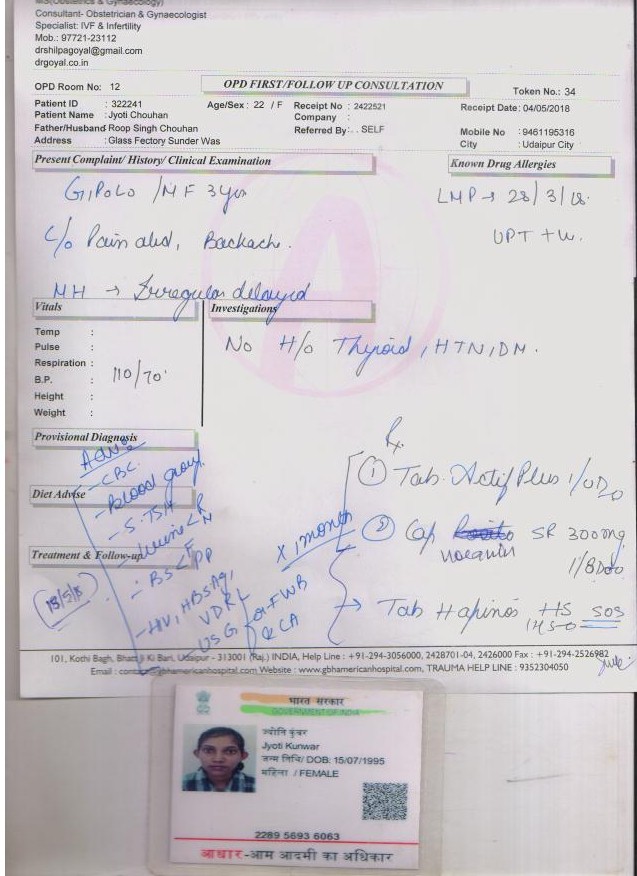 MS(Obstetrics & Gynaecology)
Consultant- Obstetrician & Gynaecologist
Specialist: IVF & Infertility
Mob.: 97721-23112
drshilpagoyal@gmail.com
drgoyal.co.in
OPD Room No: 12
OPD FIRST/FOLLOW UP CONSULTATION
Token No.: 34
Patient ID : 322241 Age/Sex : 22 / F Receipt No : 2422521 Receipt Date: 04/05/2018
Patient Name : Jyoti Chouhan Company :
Father/Husband Roop Singh Chouhan Referred By : . . SELF Mobile No : 9461195316
Address : Glass Fectory Sunder Was City : Udaipur City
Present Complaint/ History/ Clinical Examination
Known Drug Allergies
G1P0L0 / MF 3 yrs
LMP → 28/3/18.
C/o Pain abd, Backach.
UPT +ve
MH → Irregular delayed
Vitals
Investigations
Temp :
Pulse :
Respiration :
B.P. : 110/70
Height :
Weight :
No H/o Thyroid, HTN, DM.
Provisional Diagnosis
Diet Advise
Treatment & Follow-up
- CBC.
- Blood group
- S. TSH
- Urine < R M
- BS < F PP
- HIV, HBSAg, VDRL
- USG for FWB & CA
18/5/18
x 1 month
Rx
① Tab. Actif Plus 1/OD
② Cap SR 300mg
1/BD
→ Tab Hapinos HS SOS
1HS
101, Kothi Bagh, Bhatt Ji Ki Bari, Udaipur - 313001 (Raj.) INDIA, Help Line : +91-294-3056000, 2428701-04, 2426000 Fax : +91-294-2526982
Email : contact@gbhamericanhospital.com Website : www.gbhamericanhospital.com, TRAUMA HELP LINE : 9352304050
भारत सरकार
GOVERNMENT OF INDIA
ज्योति कुंवर
Jyoti Kunwar
जन्म तिथि/ DOB: 15/07/1995
महिला / FEMALE
2289 5693 6063
आधार-आम आदमी का अधिकार